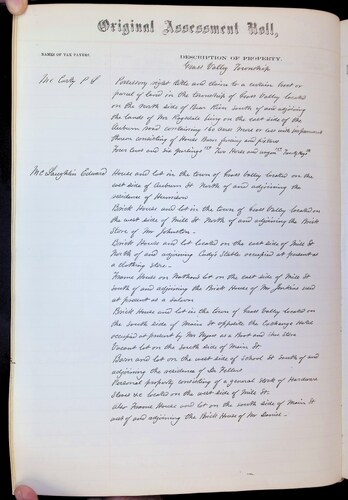 Original Assessment Roll,
NAMES OF TAX PAYERS
DESCRIPTION OF PROPERTY.
Grass Valley Township
Mc Carty P S
Possessory right title and claim to a certain tract or
parcel of land in the township of Grass Valley located
on the north side of Bear River south of and adjoining
the lands of Mr Ragsdale lying on the east side of the
Auburn Road containing 160 acres more or less with improvements
thereon consisting of House Barn fencing and fixtures
Four Cows and six Yearlings Two Horses and wagon
Mc Laughlin Edward
House and lot in the town of Grass Valley located on the
west side of Auburn St North of and adjoining the
residence of
Brick House and lot in the town of Grass Valley located on
the west side of Mill St North of and adjoining the Brick
Store of Mr Johnston.
Brick House and lot located on the east side of Mill St
North of and adjoining Cadys Stable occupied at present as
a clothing store.
Frame House on lot on the east side of Mill St
south of and adjoining the Brick House of Mr Jenkins used
at present as a saloon
Brick House and lot in the town of Grass Valley located on
the south side of Main St opposite the Exchange Hotel
occupied at present by Mr as a and shoe store
Vacant lot on the south side of Main St.
Barn and lot on the west side of School St south of and
adjoining the residence of
Personal property consisting of a general stock of Hardware
Stoves &c located on the west side of Mill St.
Also Frame House and lot on the south side of Main St
west of and adjoining the Brick House of Mr